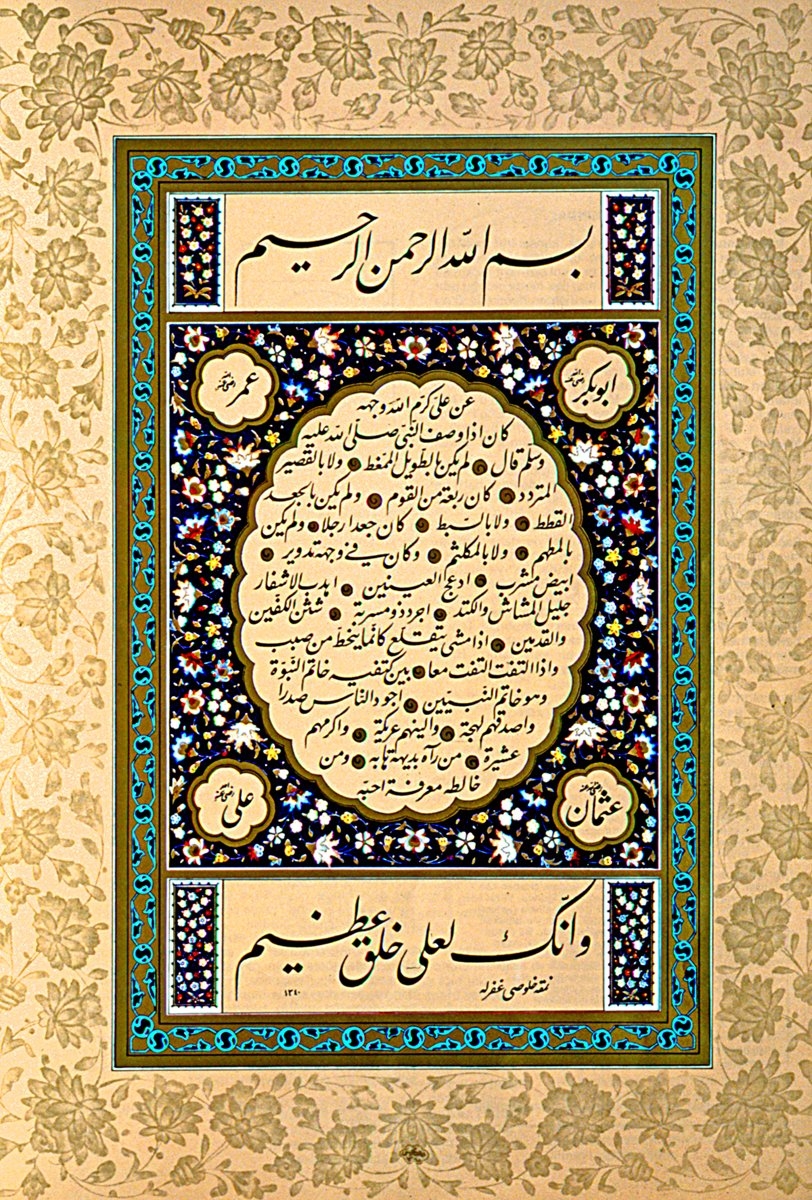 بسم الله الرحمن الرحيم
ابوبكر رضی الله عنه
عمر رضی الله عنه
عن على كرم الله وجهه
كان اذا وصف النبى صلى الله عليه
وسلم قال لم يكن بالطويل الممغط ولا بالقصير
المتردد كان ربعة من القوم ولم يكن بالجعد
القطط ولا بالسبط كان جعدا رجلا ولم يكن
بالمطهم ولا بالمكلثم وكان فى وجهه تدوير
ابيض مشرب ادعج العينين اهدب الاشفار
جليل المشاش والكتد اجرد ذو مسربة شثن الكفين
والقدمين اذا مشى يتقلع كانما ينحط من صبب
واذا التفت التفت معا بين كتفيه خاتم النبوة
وهو خاتم النبيين اجود الناس صدرا
واصدقهم لهجة والينهم عريكة واكرمهم
عشيرة من رآه بديهة هابه ومن
خالطه معرفة احبه
عثمان رضی الله عنه
على رضی الله عنه
وانك لعلى خلق عظيم
نمقه خلوصى غفرله
١٣٤٠